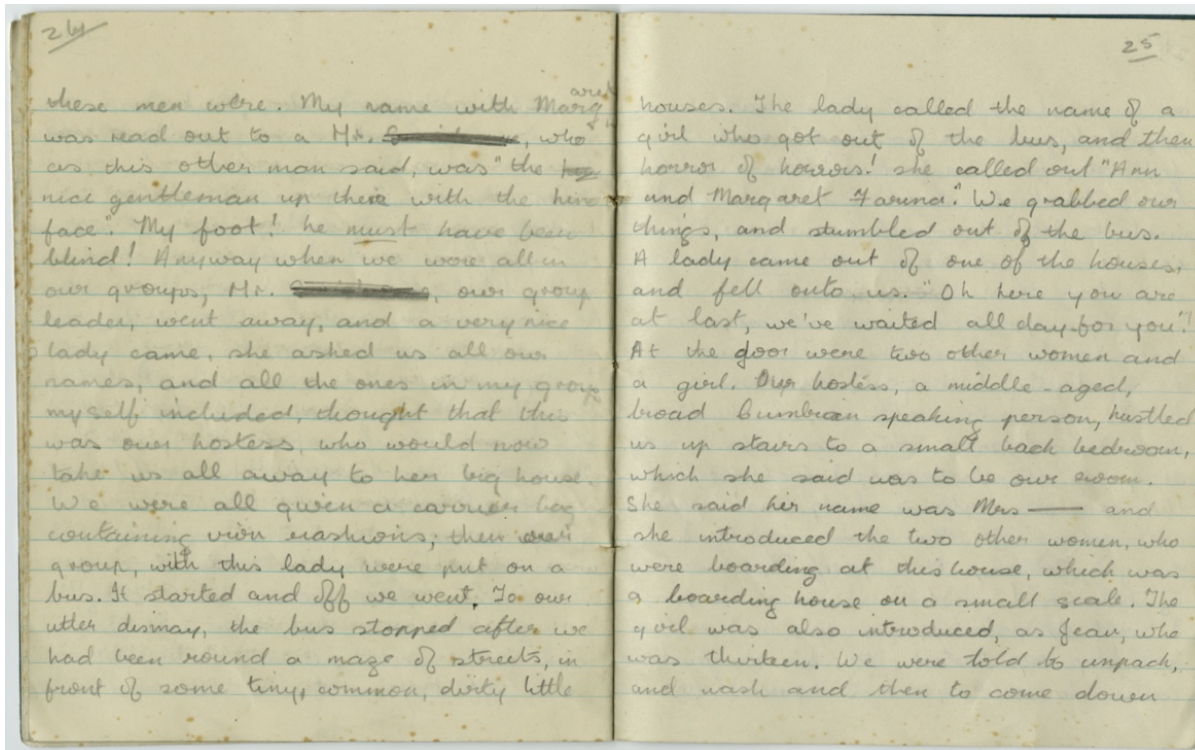 24
these men were. My name with Margaret
was read out to a Mr. , who
as this other man said, was "the
nice gentleman up there with the
face". My foot! he must have been
blind! Anyway when we were all in
our groups, Mr. , our group
leader, went away, and a very nice
lady came, she asked us all our
names, and all the ones in my group
myself included, thought that this
was our hostess, who would now
take us all away to her big house.
We were all given a carrier bag
containing iron rashions, then our
group, with this lady were put on a
bus. It started and off we went. To our
utter dismay, the bus stopped after we
had been round a maze of streets, in
front of some tiny, common, dirty little
25
houses. The lady called the name of a
girl who got out of the bus, and then
horror of horrors! she called out "Ann
and Margaret Farina". We grabbed our
things, and stumbled out of the bus.
A lady came out of one of the houses,
and fell onto us. "Oh here you are
at last, we've waited all day for you".
At the door were two other women and
a girl. Our hostess, a middle-aged,
broad Cumbrian speaking person, hustled
us up stairs to a small back bedroom,
which she said was to be our room.
She said her name was Mrs —— and
she introduced the two other women, who
were boarding at this house, which was
a boarding house on a small scale. The
girl was also introduced, as Jean, who
was thirteen. We were told to unpack,
and wash and then to come down